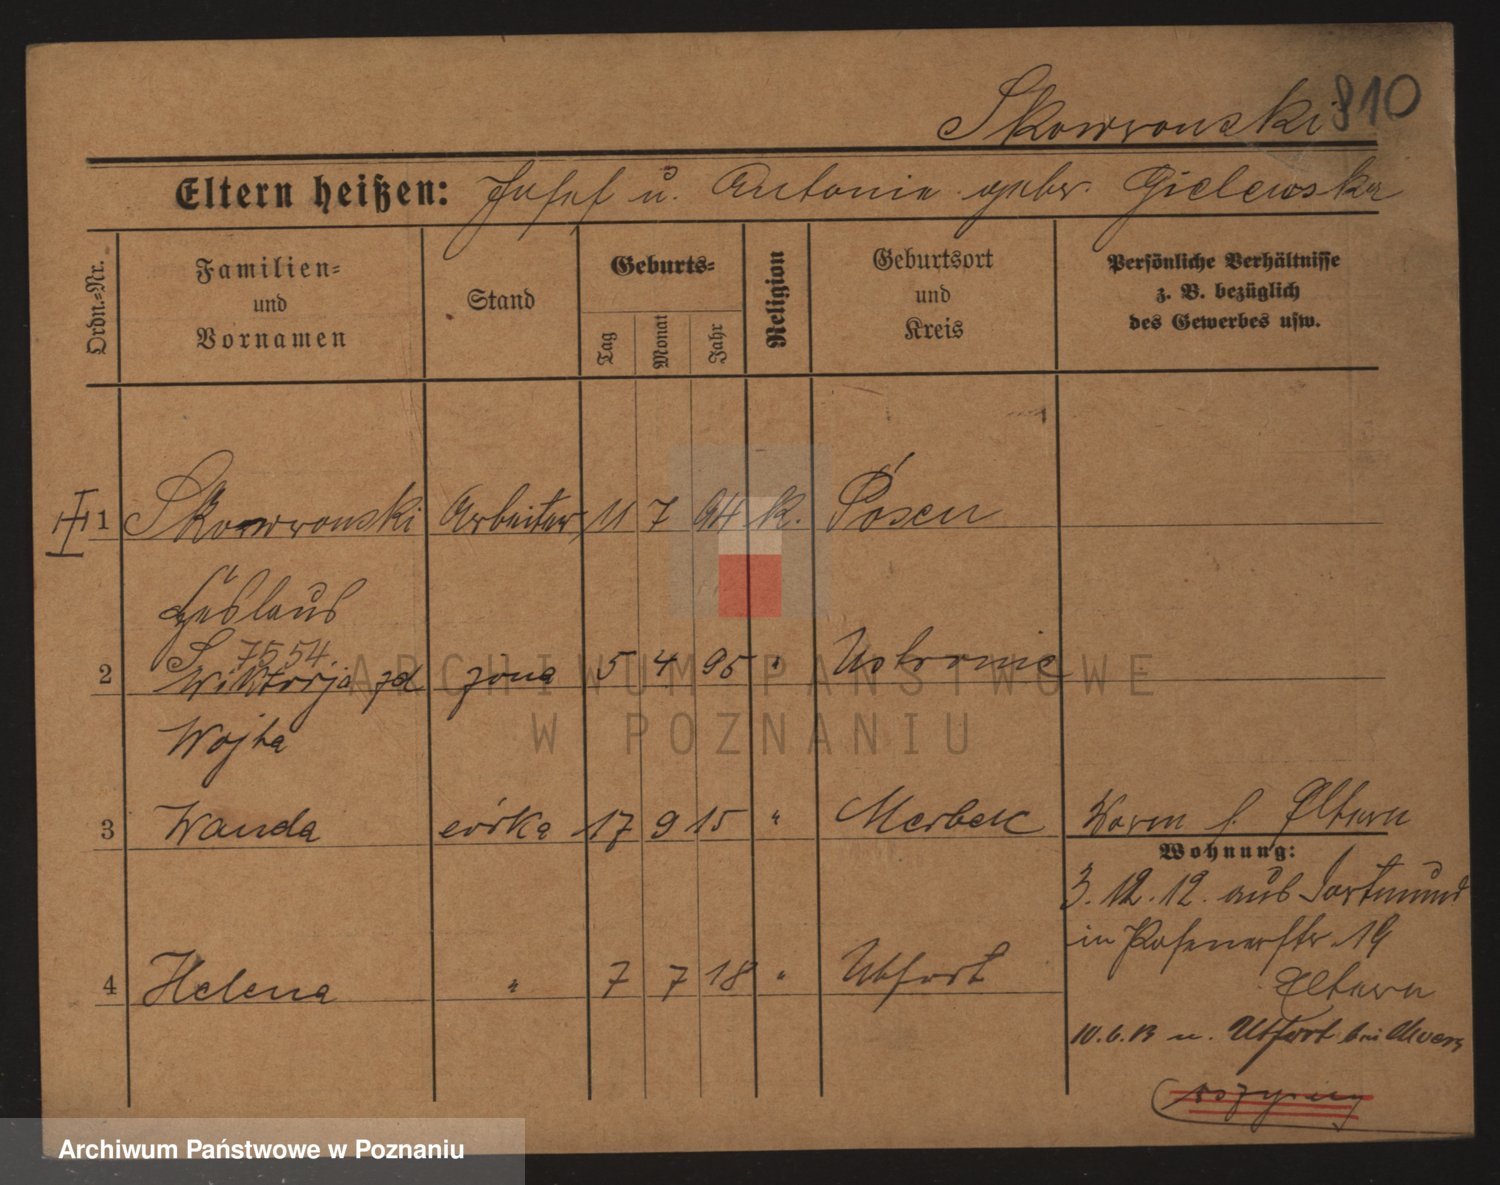 Skowronski 810
Eltern heißen: Josef u. Antonie gebr. Gielewska
Ordn.-Nr.
Familien-
und
Vornamen
Stand
Geburts-
Tag
Monat
Jahr
Religion
Geburtsort
und
Kreis
Persönliche Verhältnisse
z. B. bezüglich
des Gewerbes usw.
1 Skowronski Arbeiter 11 7 94 k. Posen
Ceslaus
S 7554
2 Wiktorja zd żona 5 4 95 " Ustronie
Wojta
3 Wanda córka 17 9 15 " Merbeck Waren b. Eltern
Wohnung:
3.12.12. aus Dortmund
in Posenerstr 19
4 Helena " 7 7 18 " Utfort
Eltern
10.6.13 n. Utfort bei Moers
ARCHIWUM PAŃSTWOWE
W POZNANIU
Archiwum Państwowe w Poznaniu